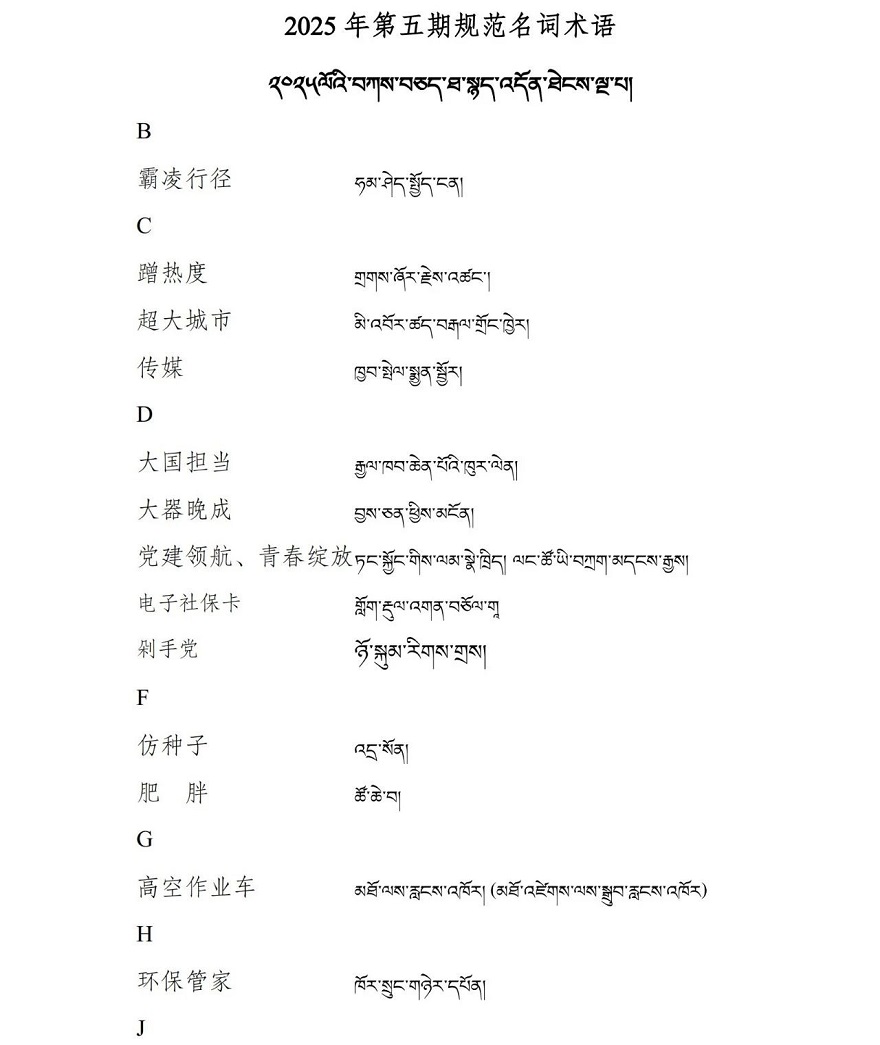 2025 年第五期规范名词术语
༢༠༢༥ལོའི་བཀས་བཅད་ཐ་སྙད་འདོན་ཐེངས་ལྔ་པ།
B
霸凌行径 ཧམ་ཤེད་སྤྱོད་ངན།
C
蹭热度 གྲགས་ཞོར་རྗེས་འཚང་།
超大城市 མི་འབོར་ཚད་བརྒལ་གྲོང་ཁྱེར།
传媒 ཁྱབ་སྤེལ་སྨྱན་སྦྱོར།
D
大国担当 རྒྱལ་ཁབ་ཆེན་པོའི་ཁུར་ལེན།
大器晚成 བྱས་ཅན་ཕྱིས་མངོན།
党建领航、青春绽放 ཏང་སྐྱོང་གིས་ལམ་སྣེ་ཁྲིད། ལང་ཚོ་ཡི་བཀྲག་མདངས་རྒྱས།
电子社保卡 གློག་རྡུལ་འགན་བཅོལ་གཱ
剁手党 ཉོ་སྐུམ་རིགས་གྲས།
F
仿种子 འདྲ་སོན།
肥 胖 ཚོ་ཆེ་བ།
G
高空作业车 མཐོ་ལས་རླངས་འཁོར། (མཐོ་འཛེགས་ལས་སྒྲུབ་རླངས་འཁོར)
H
环保管家 ཁོར་སྲུང་གཉེར་དཔོན།
J